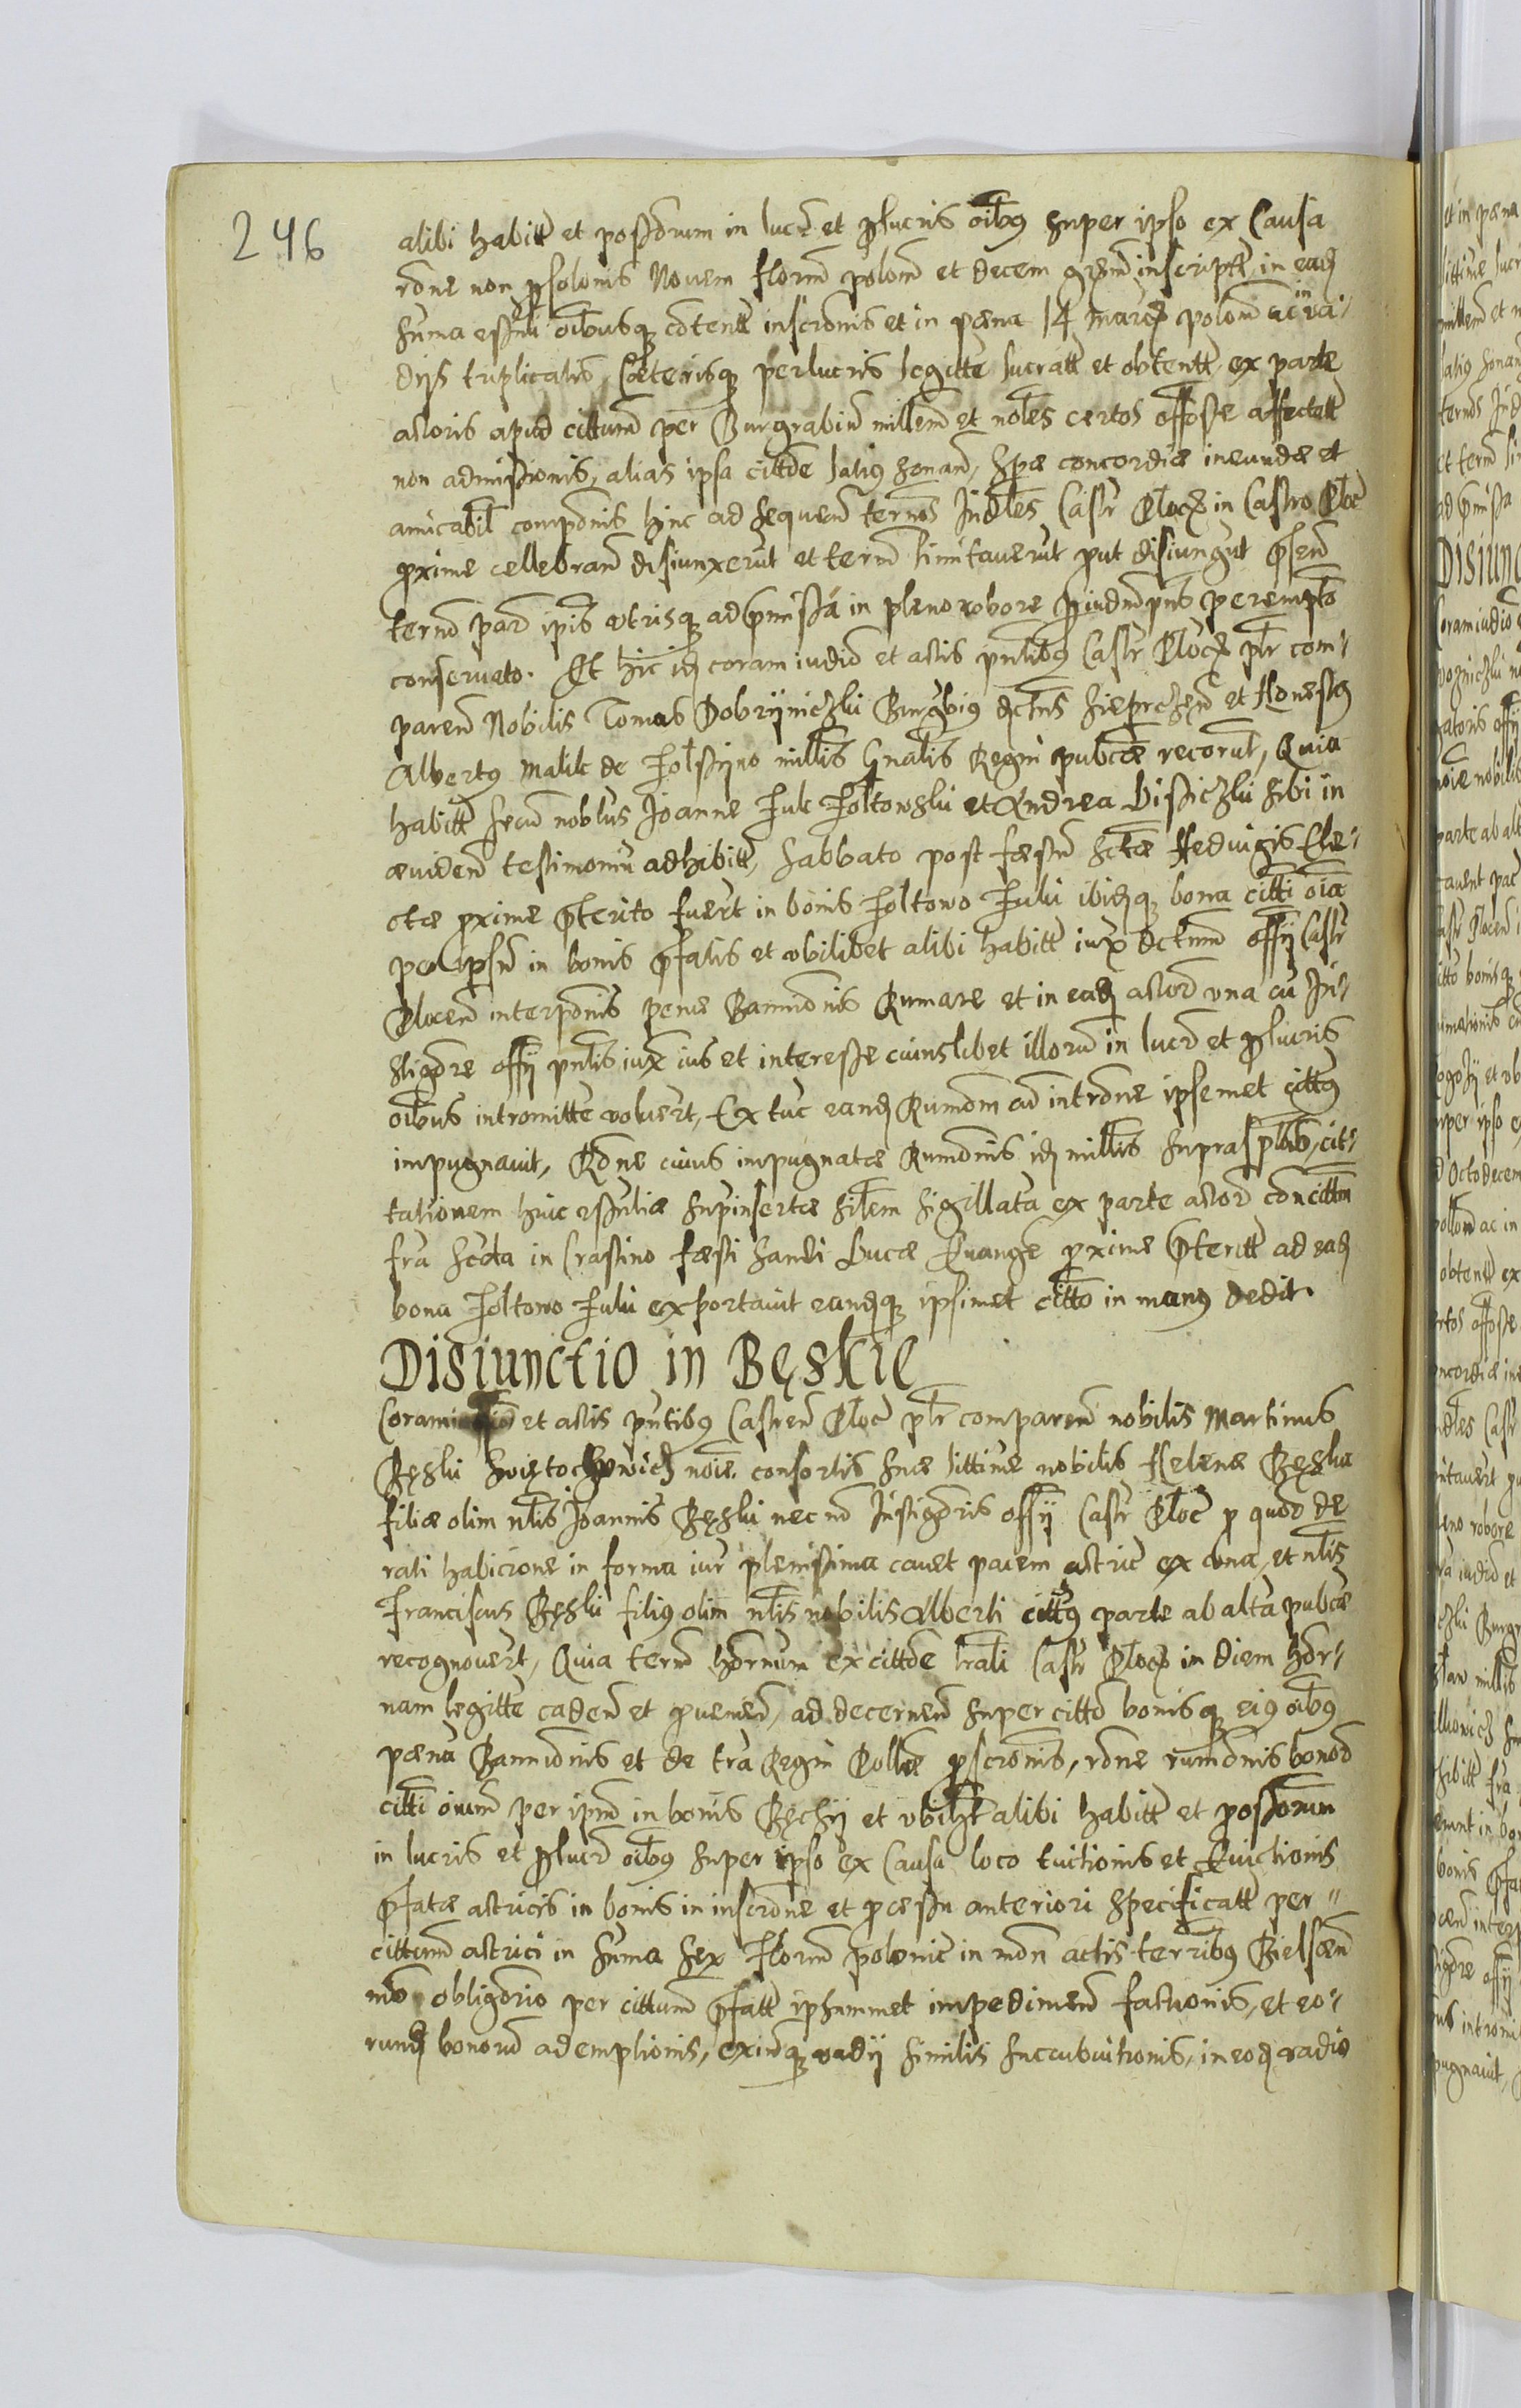 246
alibi habitt et possorum in lucr et plucris oibus super ipso ex Causa
rone non psolonis Novem floren polon et decem grom inscriptt in ead
suma essnli oibusq contentt inscronis et in pæna 14 marc polon ac in va-
dijs triplicatis, Cæterisq perlucris legitte lucratt et obtentt ex parte
actoris apud cittum per Burgrabiu millem et nobles certos offose affectatt
non admissionis, alias ipsa cittoe latius sonan, spæ concordiæ ineundæ et
amicabil componis hinc ad sequen termos Judles Castr Ploc in Castro Ploc
pxime cellebran disiunxerut et termu limitaverut put disiungut psen
termu par ipis utrisq ad pmissa in pleno robore perempto
conservato. Et hic id coram iudio et actis pntibus Castr Ploc pls com-
paren Nobilis Tomas Dobrijniczki Burgbius Sieprczen et Honestus
Albertus Malik de Holstijno millis Gnalis Regni publcæ recorut, Quia
habitt secu noblus Joanne Fuk Foltowski et Andrea sibi in
ævideni testimoniu adhibitt, Sabbato post fæstu Sctæ Hedvigis Ele-
ctæ pxime pterito fuert in bonis Foltowo Fuki ibidq bona citti oia
p ipsu in bonis pfatis et ubilibet alibi habitt iux dctmu offij Castr
Plocen interponis penæ Bannionis Rumare et in ead actor una cu In-
stigore offij pntis iux ius et interesse cuiuslibet illoru in lucr et plucris
oibus intromitte voluert, Ex tuc eand Rumom ad introne ipsemet cittus
impugnavit, Rone cuius impugnatæ Rumonis id millis supraspbtus, cit-
tationem huic essntiæ supinsertæ silem sigillata ex parte actor con cittm
fra Scda in Crastino fæsti Sancti Lucæ Evange pxime pteritt ad ead
bona Foltowo Fuki exportavit eandq ipsimet citto in manus dedit.
Disiunctio in Bęskie
Coram et actis pntibus Castren Ploc pls comparen nobilis Martinus
Bęski noie consortis suæ littimæ nobilis Helenæ Bęska
filiæ olim nlis Joannis Bęski nec no Instigoris offij Castr Ploc p quo de
rati habicione in forma iur plenissima cavet pacem actric ex una, et nlis
Franciscus Bęski filius olim nlis nobilis Alberti cittus parte ab alta publcæ
recognovert, Quia termu hornum ex cittoe lrali Castr Ploc in diem hor-
nam legitte caden et pvenien, ad decernen super citto bonisq eius oibus
pænu Bannionis et de tra Regni Pollæ pscronis, rone rumonis bonor
citti oium per ipm in bonis Bęchij et ubilbt alibi habitt et possorum
in lucris et plucr oibus super ipso ex Causa loco tuitionis et Evictionis
pfatæ actricis in bonis in inscrone et pcessu anteriori specificatt per-
cittum actrici in suma sex floren polonic in mon actis terribus Bielscen
mo obligorio per cittum pfatt ipsummet impedimen factionis, et eo-
rund bonoru ademptionis, exinq vadij similis succubuitionis, in eod vadio